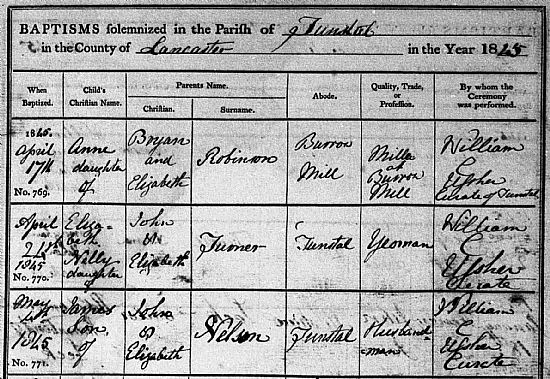 BAPTISMS solemnized in the Parish of Tunstal
in the County of Lancaster in the Year 1845
When Baptized. Child's Christian Name. Parents Name. Abode. Quality, Trade, or Profession. By whom the Ceremony was performed.
Christian. Surname.
1845. April 17th No. 769. Anne daughter of Bryan and Elizabeth Robinson Burrow Mill Miller Burrow Mill William C Usher Curate of Tunstal
April 1845 No. 770. Eliza-beth Nelly daughter of John & Elizabeth Turner Tunstal Yeoman William C Usher Curate
May 1845 No. 771. James Son of John & Elizabeth Nelson Tunstal Husband-man William C Usher Curate